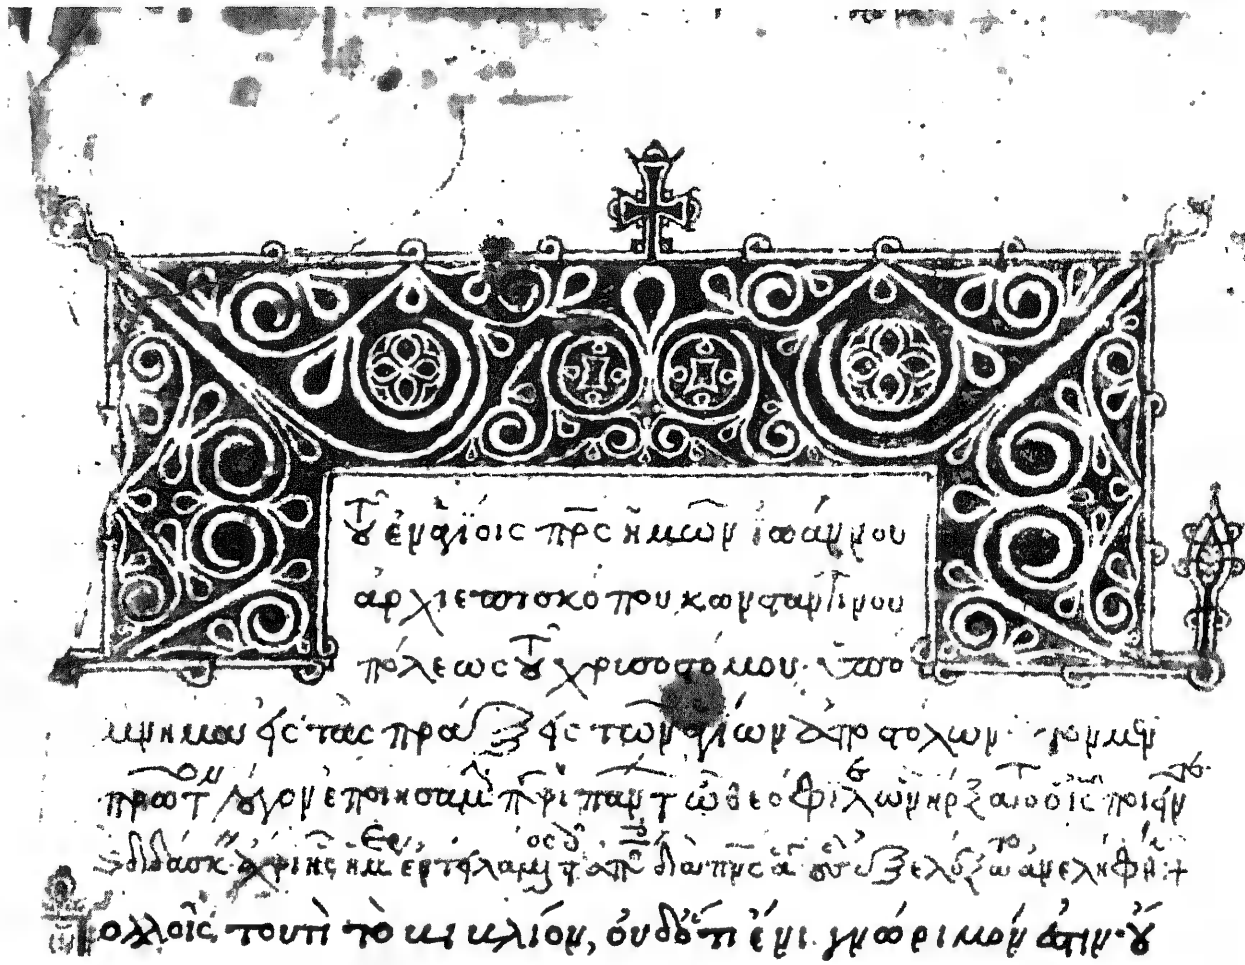 Τοῦ ἐν ἁγίοις πρς ἡμῶν ἰωάννου
ἀρχιεπισκόπου κωνσταντίνου
πόλεως τοῦ χρισοστόμου· ὑπό
μνημα εἰς τὰς πράξεις τῶν ἁγίων ἀποστόλων· τὸν μὲν
πρῶτον λόγον ἐποιησάμην περὶ πάντων ὦ θεόφιλε ὧν ἤρξατο ὁ ις ποιεῖν
διδάσκειν ἄχρι ἧς ἡμέρας ἐντειλάμενος τοῖς ἀποστόλοις διὰ πνς ἁγίου οὓς ἐξελέξατο ἀνελήφθη +
ολλοῖς τουτὶ τὸ βιβλίον, οὐδ᾽ ὅτι ἔνι γνώριμόν ἐστιν· οὐ